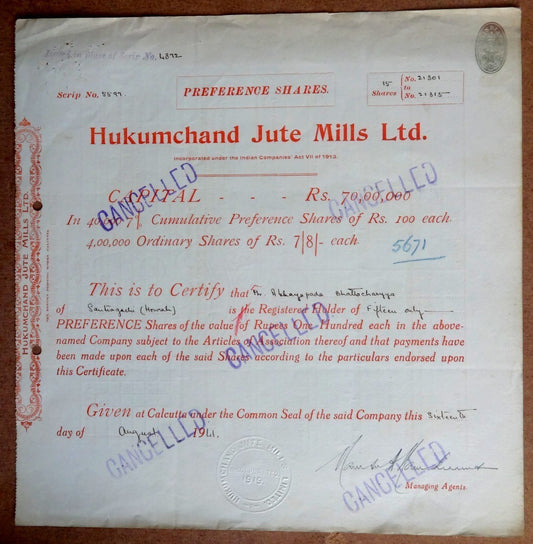 Issued in Place of Scrip No. 4872
Scrip No. 5597.
PREFERENCE SHARES.
15 Shares
No. 21301
to
No. 21315
Hukumchand Jute Mills Ltd.
Incorporated under the Indian Companies' Act VII of 1913.
CAPITAL - - - Rs. 70,00,000
In 7% Cumulative Preference Shares of Rs. 100 each.
4,00,000 Ordinary Shares of Rs. 7/8/- each.
5671
This is to Certify that Abhayapada Bhattacharyya
of Santragachi (Howrah) is the Registered Holder of Fifteen only
PREFERENCE Shares of the value of Rupees One Hundred each in the above-
named Company subject to the Articles of Association thereof and that payments have
been made upon each of the said Shares according to the particulars endorsed upon
this Certificate.
Given at Calcutta under the Common Seal of the said Company this Sixteenth
day of August 1941.
Managing Agents.
CANCELLED
CANCELLED
CANCELLED
CANCELLED
CANCELLED
HUKUMCHAND JUTE MILLS LTD.
HUKUMCHAND JUTE MILLS LIMITED
1919